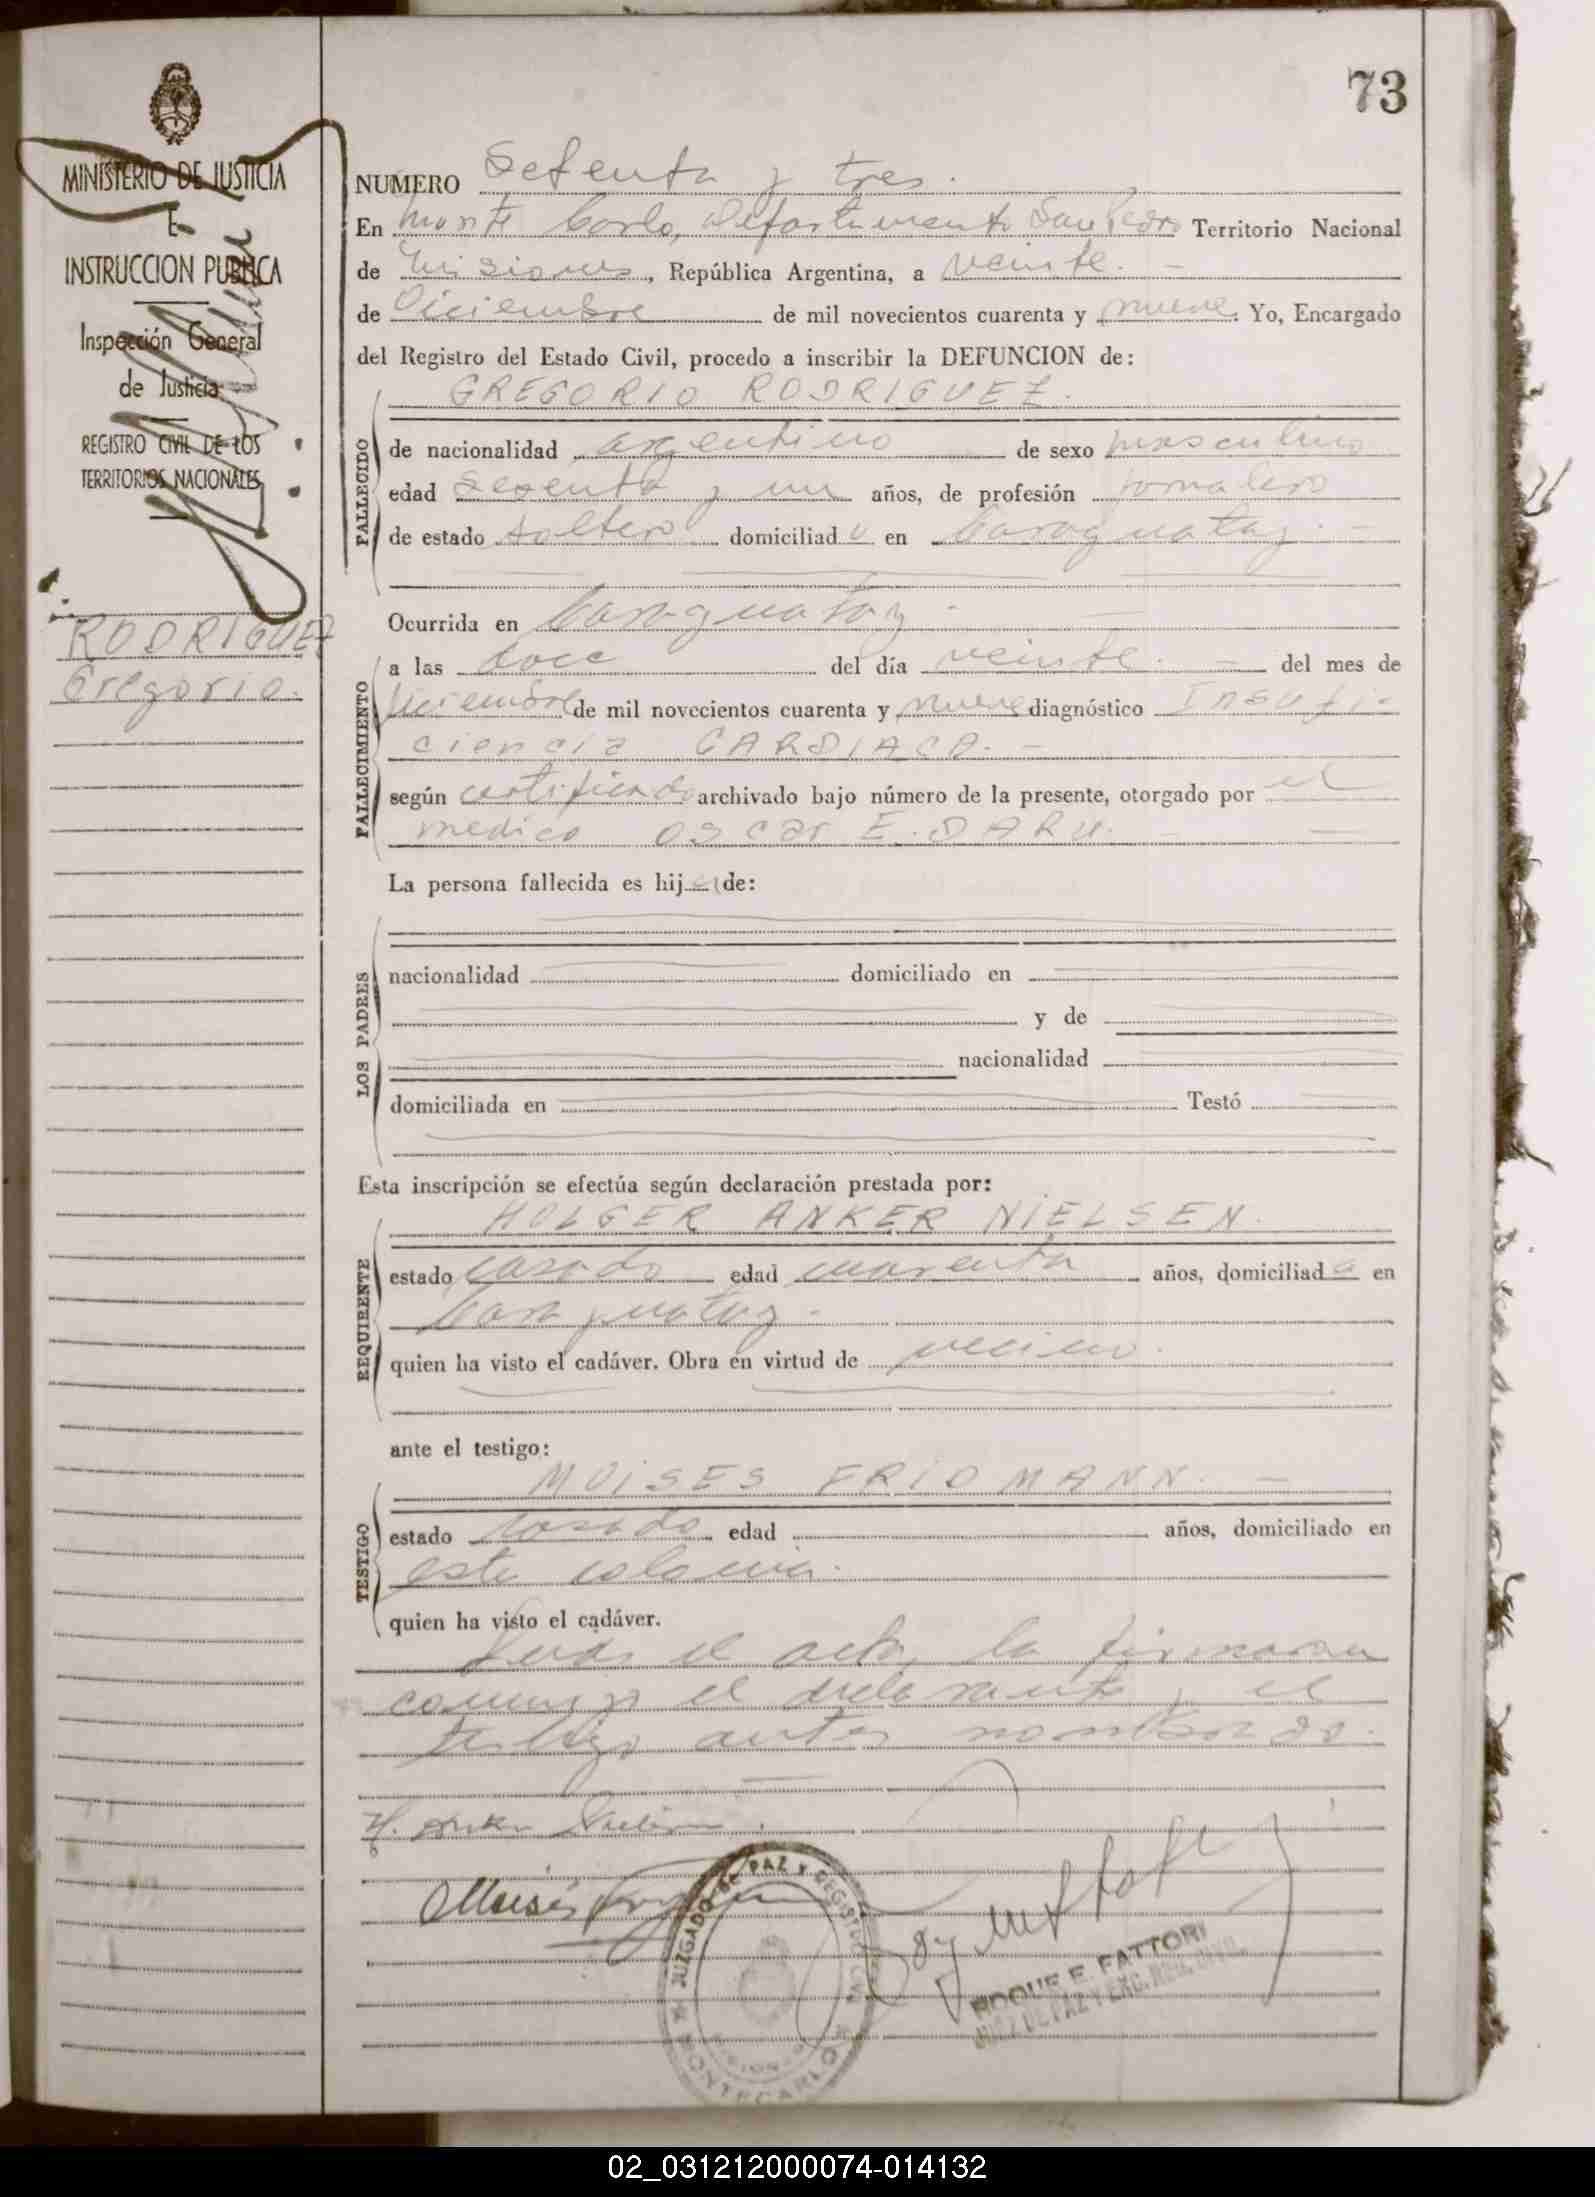 73
MINISTERIO DE JUSTICIA
E
INSTRUCCION PUBLICA
Inspección General
de Justicia
REGISTRO CIVIL DE LOS
TERRITORIOS NACIONALES
RODRIGUEZ
Gregorio.
NUMERO Setenta y tres.
En Monte Carlo, Departamento San Pedro Territorio Nacional
de Misiones, República Argentina, a veinte. -
de Diciembre de mil novecientos cuarenta y nueve. Yo, Encargado
del Registro del Estado Civil, procedo a inscribir la DEFUNCION de:
GREGORIO RODRIGUEZ.
FALLECIDO
de nacionalidad argentino de sexo masculino
edad sesenta y un años, de profesión jornalero
de estado soltero domiciliado en Caraguatay. -
Ocurrida en Caraguatay. -
FALLECIMIENTO
a las doce del día veinte. - del mes de
diciembre de mil novecientos cuarenta y nueve diagnóstico Insufi-
ciencia CARDIACA. -
según certificado archivado bajo número de la presente, otorgado por el
medico Oscar E. DARU. -
La persona fallecida es hijo de:
LOS PADRES
nacionalidad domiciliado en
y de
nacionalidad
domiciliada en Testó
Esta inscripción se efectúa según declaración prestada por:
HOLGER ANKER NIELSEN.
REQUIRENTE
estado casado edad cuarenta años, domiciliado en
Caraguatay.
quien ha visto el cadáver. Obra en virtud de vecino.
ante el testigo:
MOISES FRIDMANN. -
TESTIGO
estado casado edad años, domiciliado en
esta colonia.
quien ha visto el cadáver.
Leida el acta, la firmaron
conmigo el declarante y el
testigo antes nombrado.
H. Anker Nielsen.
Moisés
JUZGADO DE PAZ Y REGISTRO CIVIL
MISIONES
MONTECARLO
ROQUE E. FATTORI
JUEZ DE PAZ Y ENC. REG. CIVIL
02_031212000074-014132